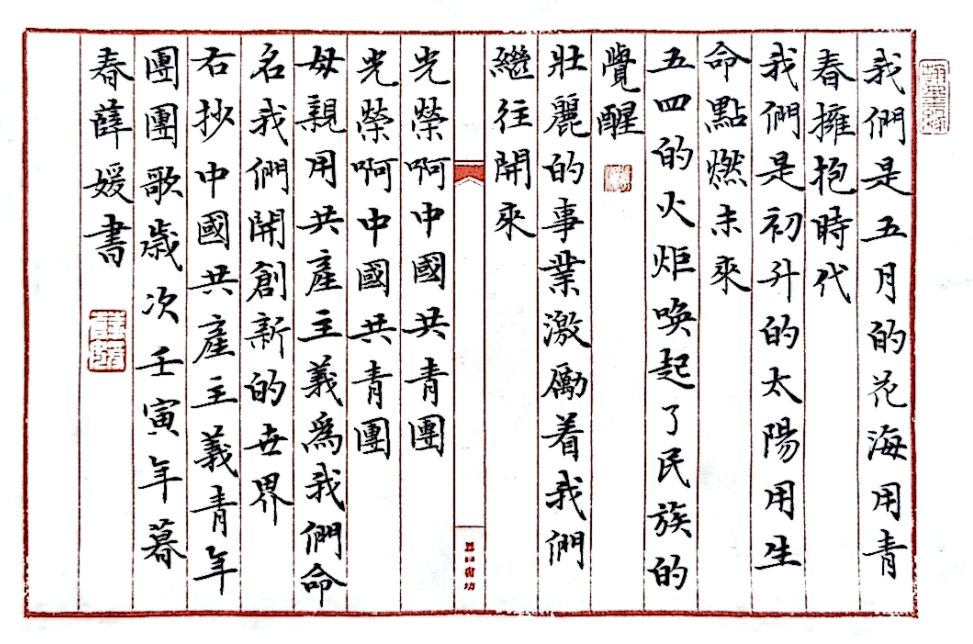 我們是五月的花海用青
春擁抱時代
我們是初升的太陽用生
命點燃未來
五四的火炬喚起了民族的
覺醒
壯麗的事業激勵着我們
繼往開來
光榮啊中國共青團
光榮啊中國共青團
母親用共產主義爲我們命
名我們開創新的世界
右抄中國共產主義青年
團團歌歲次壬寅年暮
春薛媛書